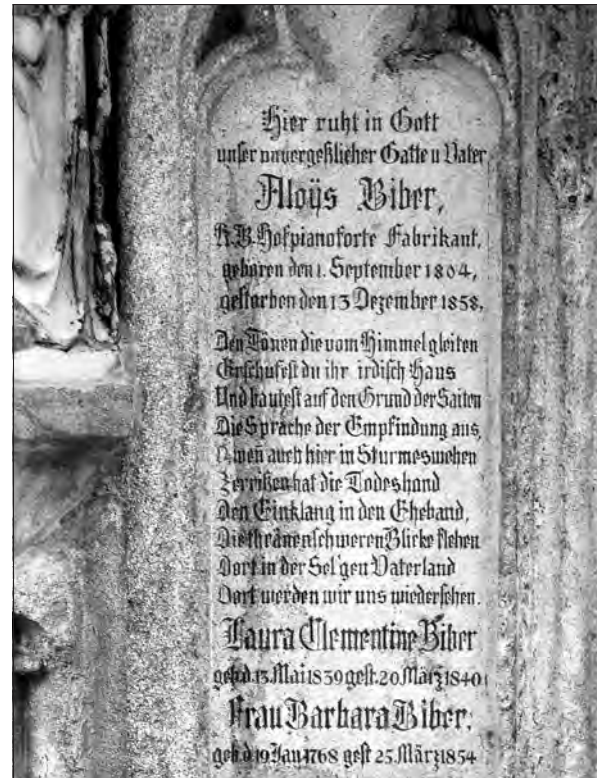 Hier ruht in Gott
unser unvergeßlicher Gatte u Vater
Aloÿs Biber,
K.B. Hofpianoforte Fabrikant,
geboren den 1. September 1804,
gestorben den 13 Dezember 1858,
Den Tönen die vom Himmel gleiten
Erschufest du ihr irdisch Haus
Und bautest auf den Grund der Saiten
Die Sprache der Empfindung aus,
O wen auch hier in Sturmeswehen
Zerrißen hat die Todeshand
Den Einklang in den Eheband,
Die thränenschweren Blicke flehen
Dort in der Sel'gen Vaterland
Dort werden wir uns wiedersehen.
Laura Clementine Biber
geb.d.13.Mai 1839 gest. 20 März 1840
Frau Barbara Biber,
geb.d 19 Jan 1768 gest 25 März 1854